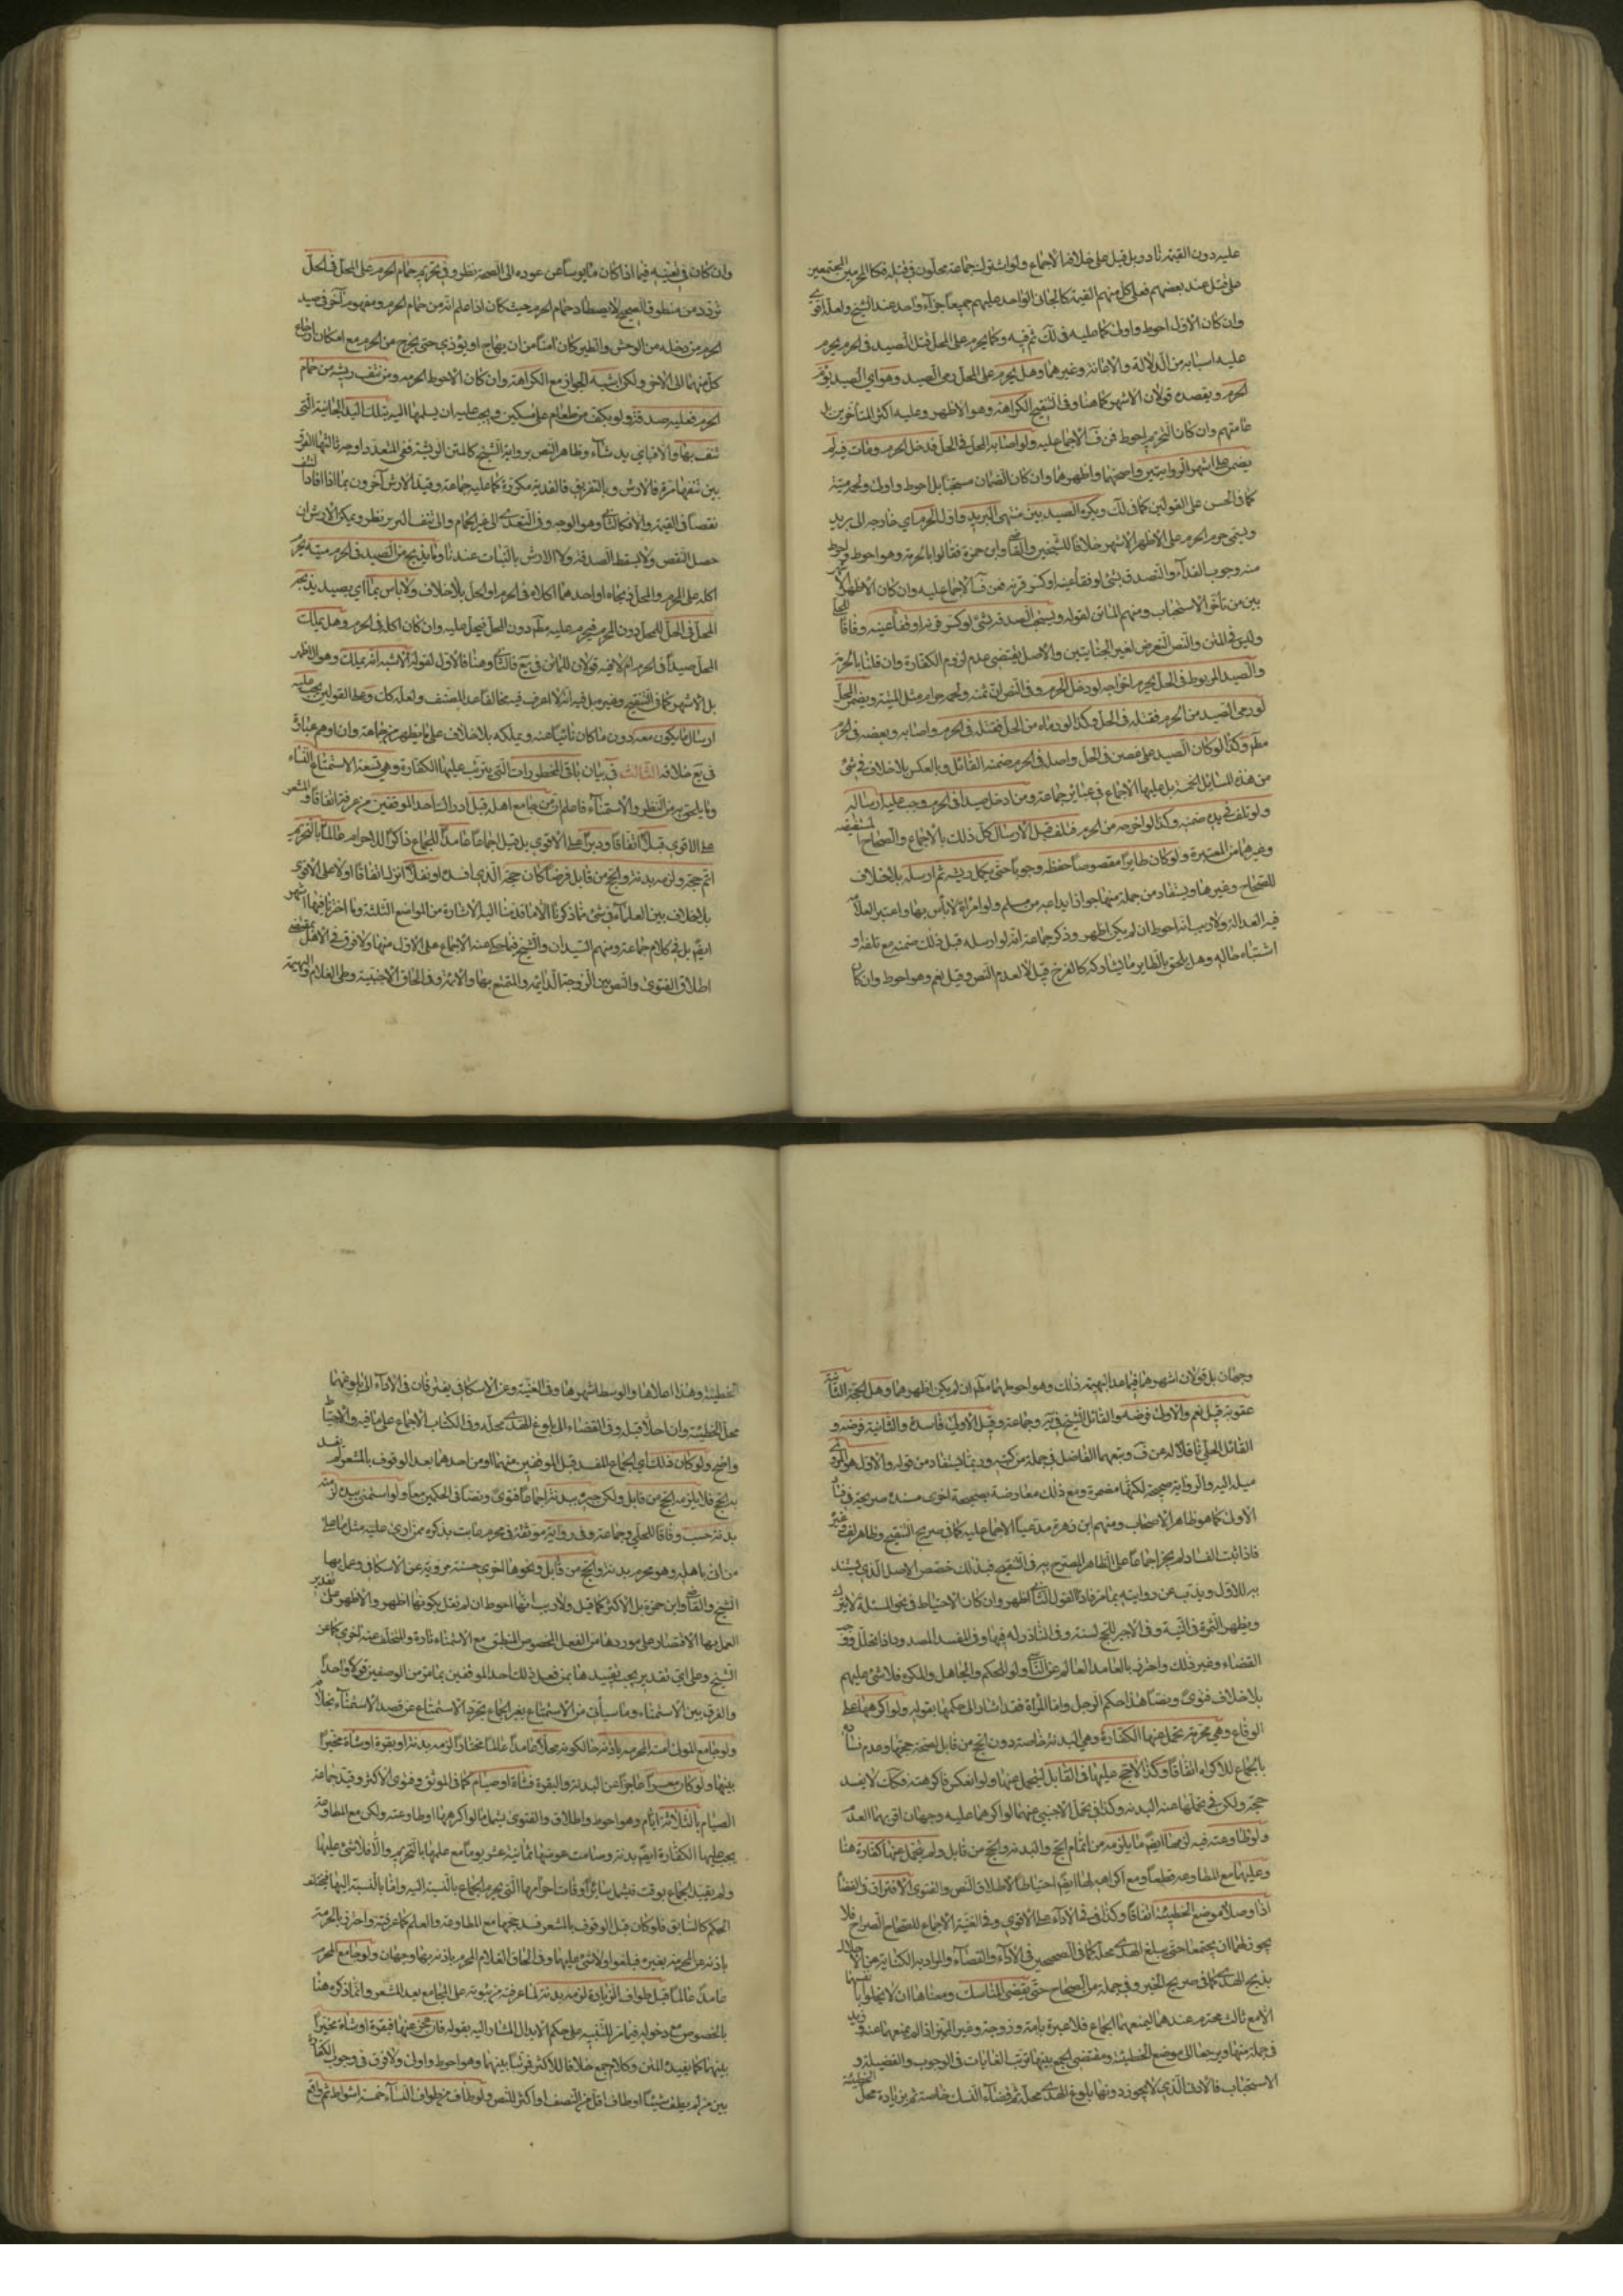 عليه دون القيمة نادر بل قيل على خلافه الاجماع ولو اشترك جماعة محلون في قتله فكالمحرمين المجتمعين
على قتل عند بعضهم فعلى كل منهم القيمة كالجاني الواحد عليهم جميعا جزاء واحد عند الشيخ ولعله اقوى
وان كان الاول احوط واولى كما عليه في لك ثم فيه وكما يحرم على المحل قتل الصيد في الحرم يحرم
عليه اسبابه من الدلالة والاعانة وغيرهما وهل يحرم على المحل رمي الصيد وهو اي الصيد يؤم
الحرم ويقصده قولان الاشهر كما هنا وفي التنقيح الكراهة وهو الاظهر وعليه اكثر المتاخرين بل
عامتهم وان كان التحريم احوط فعن ف الاجماع عليه ولو اصابه المحل في الحل فدخل الحرم ومات فيه لم
يضمن على اشهر الروايتين واصحهما واظهرهما وان كان الضمان مستحبا بل احوط واولى ولحمه ميتة
كما في الحسن على القولين كما في لك ويكره الصيد بين منتهى البريد واول الحرم اي خارجه الى بريد
ويسمى حرم الحرم على الاظهر الاشهر خلافا للشيخين والقاضي وابن حمزة فقالوا بالحرمة وهو احوط واحوط
منه وجوب الفداء والتصدق بشئ لو فقأ عينه او كسر قرنه فعن ف الاجماع عليه وان كان الاظهر الاشهر
بين من تأخر الاستحباب ومنهم الماتن لقوله ويستحب الصدقة بشئ لو كسر قرنه او فقأ عينه وفاقا للحلي
وليس في المتن والنص التعرض لغير الجنايتين والاصل يقتضي عدم لزوم الكفارة وان قلنا بالحرمة
والصيد المربوط في الحل يحرم اخراجه لو دخل الحرم وفي النص ان ثمنه ولحمه حرام مثل الميتة ويضمن المحل
لو رمى الصيد من الحرم فقتله في الحل وكذا لو رماه من الحل فقتله في الحرم واصابه وبعضه في الحرم
مطم وكذا لو كان الصيد على غصن في الحل واصله في الحرم ضمنه القاتل وبالعكس بلا خلاف في شئ
من هذه المسائل الخمسة بل عليها الاجماع في عبائر جماعة ومن ادخل صيدا في الحرم وجب عليه ارساله
ولو تلف في يده ضمنه وكذا لو اخرجه من الحرم فتلف قبل الارسال كل ذلك بالاجماع والصحاح المستفيضة
وغيرها من المعتبرة ولو كان طايرا مقصوصا حفظه وجوبا حتى يكمل ريشه ثم ارسله بلا خلاف
للصحاح وغيرها ويستفاد من جملة منها جواز ايداعه من مسلم ولو امراة لا بأس بها واعتبر العلامة
فيه العدالة ولا ريب انه احوط ان لم يكن اظهر وذكر جماعة انه لو ارسله قبل ذلك ضمنه مع تلفه او
اشتباه حاله وهل يلحق بالطاير ما يشاركه كالفرخ قيل لا لعدم النص وقيل نعم وهو احوط وان كان
وان كان في تعينه فيما اذا كان مأيوسا عن عوده الى الصحة نظر وفي تحريم حمام الحرم على المحل في الحل
تردد من منطوق الصحيح لا يصطاد حمام الحرم حيث كان اذا علم انه من حمام الحرم ومفهوم آخر في صيد
الحرم من دخله من الوحش والطير كان آمنا من ان يهاج او يؤذي حتى يخرج من الحرم مع امكان ارجاع
كل منهما الى الاخر ولكن اشبهه الجواز مع الكراهة وان كان الاحوط الحرمة ومن نتف ريشة من حمام
الحرم فعليه صدقة ولو بكف من طعام على مسكين ويجب عليه ان يسلمها اليه بتلك اليد الجانية التي
نتف بها والا فباي يد شاء وظاهر النص برواية الشيخ كالمتن الوريشة ففي المتعدد اوجه ثالثها الفرق
بين نتفها مرة فالارش وبالتفريق فالفدية مكررة كما عليه جماعة وقيد الارش آخرون بما اذا افاد النتف
نقصا في القيمة والا فكالثاني وهو الوجه وفي التعدي الى غير الحمام والى نتف الوبر نظر ويمكن الارش ان
حصل النقص ولا يسقط الصدقة ولا الارش بالنبات عندنا وما يذبح من الصيد في الحرم ميتة يحرم
اكله على المحرم والمحل ذبحاه او احدهما اكلاه في الحرم او الحل بلا خلاف ولا بأس بما اي بصيد يذبحه
المحل في الحل للمحل دون المحرم فيحرم عليه مطم دون المحل فيحل عليه وان كان اكله في الحرم وهل يملك
المحل صيدا في الحرم ام لا فيه قولان للماتن في يع فالثاني وهنا فالاول لقوله الاشبه انه يملك وهو الاظهر
بل الاشهر كما في التنقيح وغيره بل فيه انه لا اعرف فيه مخالفا عدا المصنف ولعله كان وعلى القولين يجب عليه
ارسال ما يكون معه دون ما كان نائيا عنه ويملكه بلا خلاف على ما يظهر من جماعة وان اوهم عبارة
في يع خلافه الثالث في بيان باقي المحظورات التي يترتب عليها الكفارة وهي تسعة الاستمتاع النساء
وما يلحق به من النظر والاستمناء فاعلم ان من جامع اهله قبل ادراك احد الموقفين من عرفة اتفاقا والمشعر
على الاقوى قبلا اتفاقا ودبرا على الاقوى بل قيل اجماعا عامدا للجماع ذاكرا للاحرام عالما بالتحريم
اتم حجه ولزمه بدنة والحج من قابل فرضا كان حجه الذي افسده او نفلا انزل اتفاقا او لا على الاقوى
بلا خلاف بين العلماء في شئ مما ذكرنا الا ما قدمنا اليه الاشارة من المواضع الثلثة وما اخترناه فيها اشهر
ايضم بل في كلام جماعة ومنهم السيدان والشيخ فيما حكي عنه الاجماع على الاول منها ولا فرق في الاهل بمقتضى
اطلاق الفتوى والنص بين الزوجة الدايمة والمتمتع بها والامة وفي الحاق الاجنبية وطي الغلام والبهيمة
وجهان بل قولان اشهرهما فيما عدا البهيمة ذلك وهو احوطهما مطم ان لم يكن اظهرهما وهل الحجة الثانية
عقوبة قيل نعم والاولى فرضه والقائل الشيخ في يه وجماعة وقيل الاولى فاسدة والثانية فرضه و
القائل الحلي ناقلا له عن ف وتبعهما الفاضل في جملة من كتبه وربما يستفاد من قوله والاول هو المروي
ميله اليه والرواية صحيحة لكنها مضمرة ومع ذلك معارضة بصحيحة اخرى مسندة صريحة في فساد
الاولى كما هو ظاهر الاصحاب ومنهم ابن زهرة مدعيا الاجماع عليه كما في صريح التنقيح وظاهر لف وغيره
فاذا ثبت الفساد لم يجز اجماعا على الظاهر المصرح به في التنقيح فبذلك خصص الاصل الذي يستند
به للاول ويذب عن روايته بما مر فاذا القول الثاني اظهر وان كان الاحتياط في نحو المسئلة لا يترك
ويظهر الثمرة في النية وفي الاجير للحج لسنة وفي الناذر له فيها وفي المفسد المصدود اذا تحلل ووجب
القضاء وغير ذلك واحترز بالعامد العالم عن الناسي ولو للحكم والجاهل والمكره فلا شئ عليهم
بلا خلاف فتوى ونصا هذا حكم الرجل واما المراة فقد اشار الى حكمها بقوله ولو اكرهها على
الوقاع وهي محرمة تحمل عنها الكفارة وهي البدنة خاصة دون الحج من قابل لصحة حجها وعدم فساده
بالجماع للاكراه اتفاقا وكذا لا حج عليها في القابل ليتحمل عنها ولو انعكس فاكرهته فكك لا يفسد
حجه ولكن في تحملها عنه البدنة وكذا في تحمل الاجنبي عنهما لو اكرههما عليه وجهان اقربهما العدم
ولو طاوعته فيه لزمها ايضم ما يلزمه من اتمام الحج والبدنة والحج من قابل ولم يتحمل عنها كفارة هنا
وعليهما مع المطاوعة قطعا ومع اكراهه لها ايضم احتياطا لاطلاق النص والفتوى الافتراق في القضاء
اذا وصلا موضع الخطيئة اتفاقا وكذا في الاداء على الاقوى وفي الغنية الاجماع للصحاح الصراح فلا
يجوز لهما ان يجتمعا حتى يبلغ الهدي محله كما في الصحيحين في الاداء والقضاء والمراد به الكناية عن الاحلال
بذبح الهدي كما في صريح الخبر وفي جملة من الصحاح حتى يقضي المناسك ومعناها ان لا يخلوا بانفسهما
الا مع ثالث محترم عندهما ليمنعهما الجماع فلا عبرة بامة وزوجة وغير المميز اذا لم يمنعهما عنه وزيد
في جملة منها ويرجعا الى موضع الخطيئة ومقتضى الجمع بينها ترتب الغايات في الوجوب والفضيلة و
الاستحباب فالادنى الذي لا يجوز دونها بلوغ الهدي محله ثم قضاء المناسك خاصة ثم بزيادة محل الخطيئة
الخطيئة وهذا اعلاها والوسط اشهرها وفي الغنية وعن الاسكافي يفترقان في الاداء الى بلوغهما
محل الخطيئة وان احلا قبله وفي القضاء الى بلوغ الهدي محله وفي الكتاب الاجماع على ما فيه والاحتياط
واضح ولو كان ذلك اي الجماع المفسد قبل الموقفين منهما او من احدهما بعد الوقوف بالمشعر لم يفسد
به الحج فلا يلزمه الحج من قابل ولكن جبره ببدنة اجماعا فتوى ونصا في الحكمين معا ولو استمنى بيده لزمته
بدنة حسب وفاقا للحلي وجماعة وفي رواية موثقة في محرم عابث بذكره فمنى ارى عليه مثل ما على
من اتى باهله وهو محرم بدنة والحج من قابل ونحوها اخرى حسنة مروية عن الاسكافي وعمل بها
الشيخ والقاضي وابن حمزة بل الاكثر كما قيل ولا ريب انها احوط ان لم نقل بكونها اظهر والاظهر على تقدير
العمل بها الاقتصار على موردها من الفعل المخصوص المنطبق مع الاستمناء تارة والتخلف عنه اخرى كما عن
الشيخ وعلى اي تقدير يجب تقييدها بمن فعل ذلك احد الموقفين بما مر من الوصفين قولا واحدا
والفرق بين الاستمناء وما سيأتي من الاستمتاع بغير الجماع تجرد الاستمتاع عن قصد الاستمناء بخلافه
ولو جامع المولى امته المحرمة باذنه حالكونه محلا عامدا عالما مختارا لزمه بدنة او بقرة او شاة مخيرا
بينها ولو كان معسرا عاجزا عن البدنة والبقرة فشاة او صيام كما في الموثق وفتوى الاكثر وقيد جماعة
الصيام بالثلاثة ايام وهو احوط واطلاق والفتوى يشمل ما لو اكرهها او طاوعته ولكن مع المطاوعة
يجب عليها الكفارة ايضم بدنة وصامت عوضها ثمانية عشر يوما مع علمها بالتحريم والا فلا شئ عليها
ولم يقيد الجماع بوقت فيشمل سائر اوقات احرامها التي يحرم الجماع بالنسبة اليه واما بالنسبة اليها فيختلف
الحكم كالسابق فلو كان قبل الوقوف بالمشعر فسد حجها مع المطاوعة والعلم كما عرفته واحترز بالحرمة
باذنه عن المحرمة بغيره فيلغو او لا شئ عليها وفي الحاق الغلام المحرم باذنه بها وجهان ولو جامع المحرم
عامدا عالما قبل طواف الزيارة لزمه بدنة لما عرفته من ثبوته على المجامع بعد المشعر وانما ذكره هنا
بالخصوص مع دخوله فيما مر للتنبيه على حكم الابدال المشار اليه بقوله فان عجز عنها فبقرة او شاة مخيرا
بينهما كما يفيده المتن وكلام جمع خلافا للاكثر فرتبا بينهما وهو احوط واولى ولا فرق في وجوب الكفارة
بين من لم يطف شيئا او طاف اقل من النصف او اكثر للنص ولو طاف من طواف النساء خمسة اشواط ثم واقع